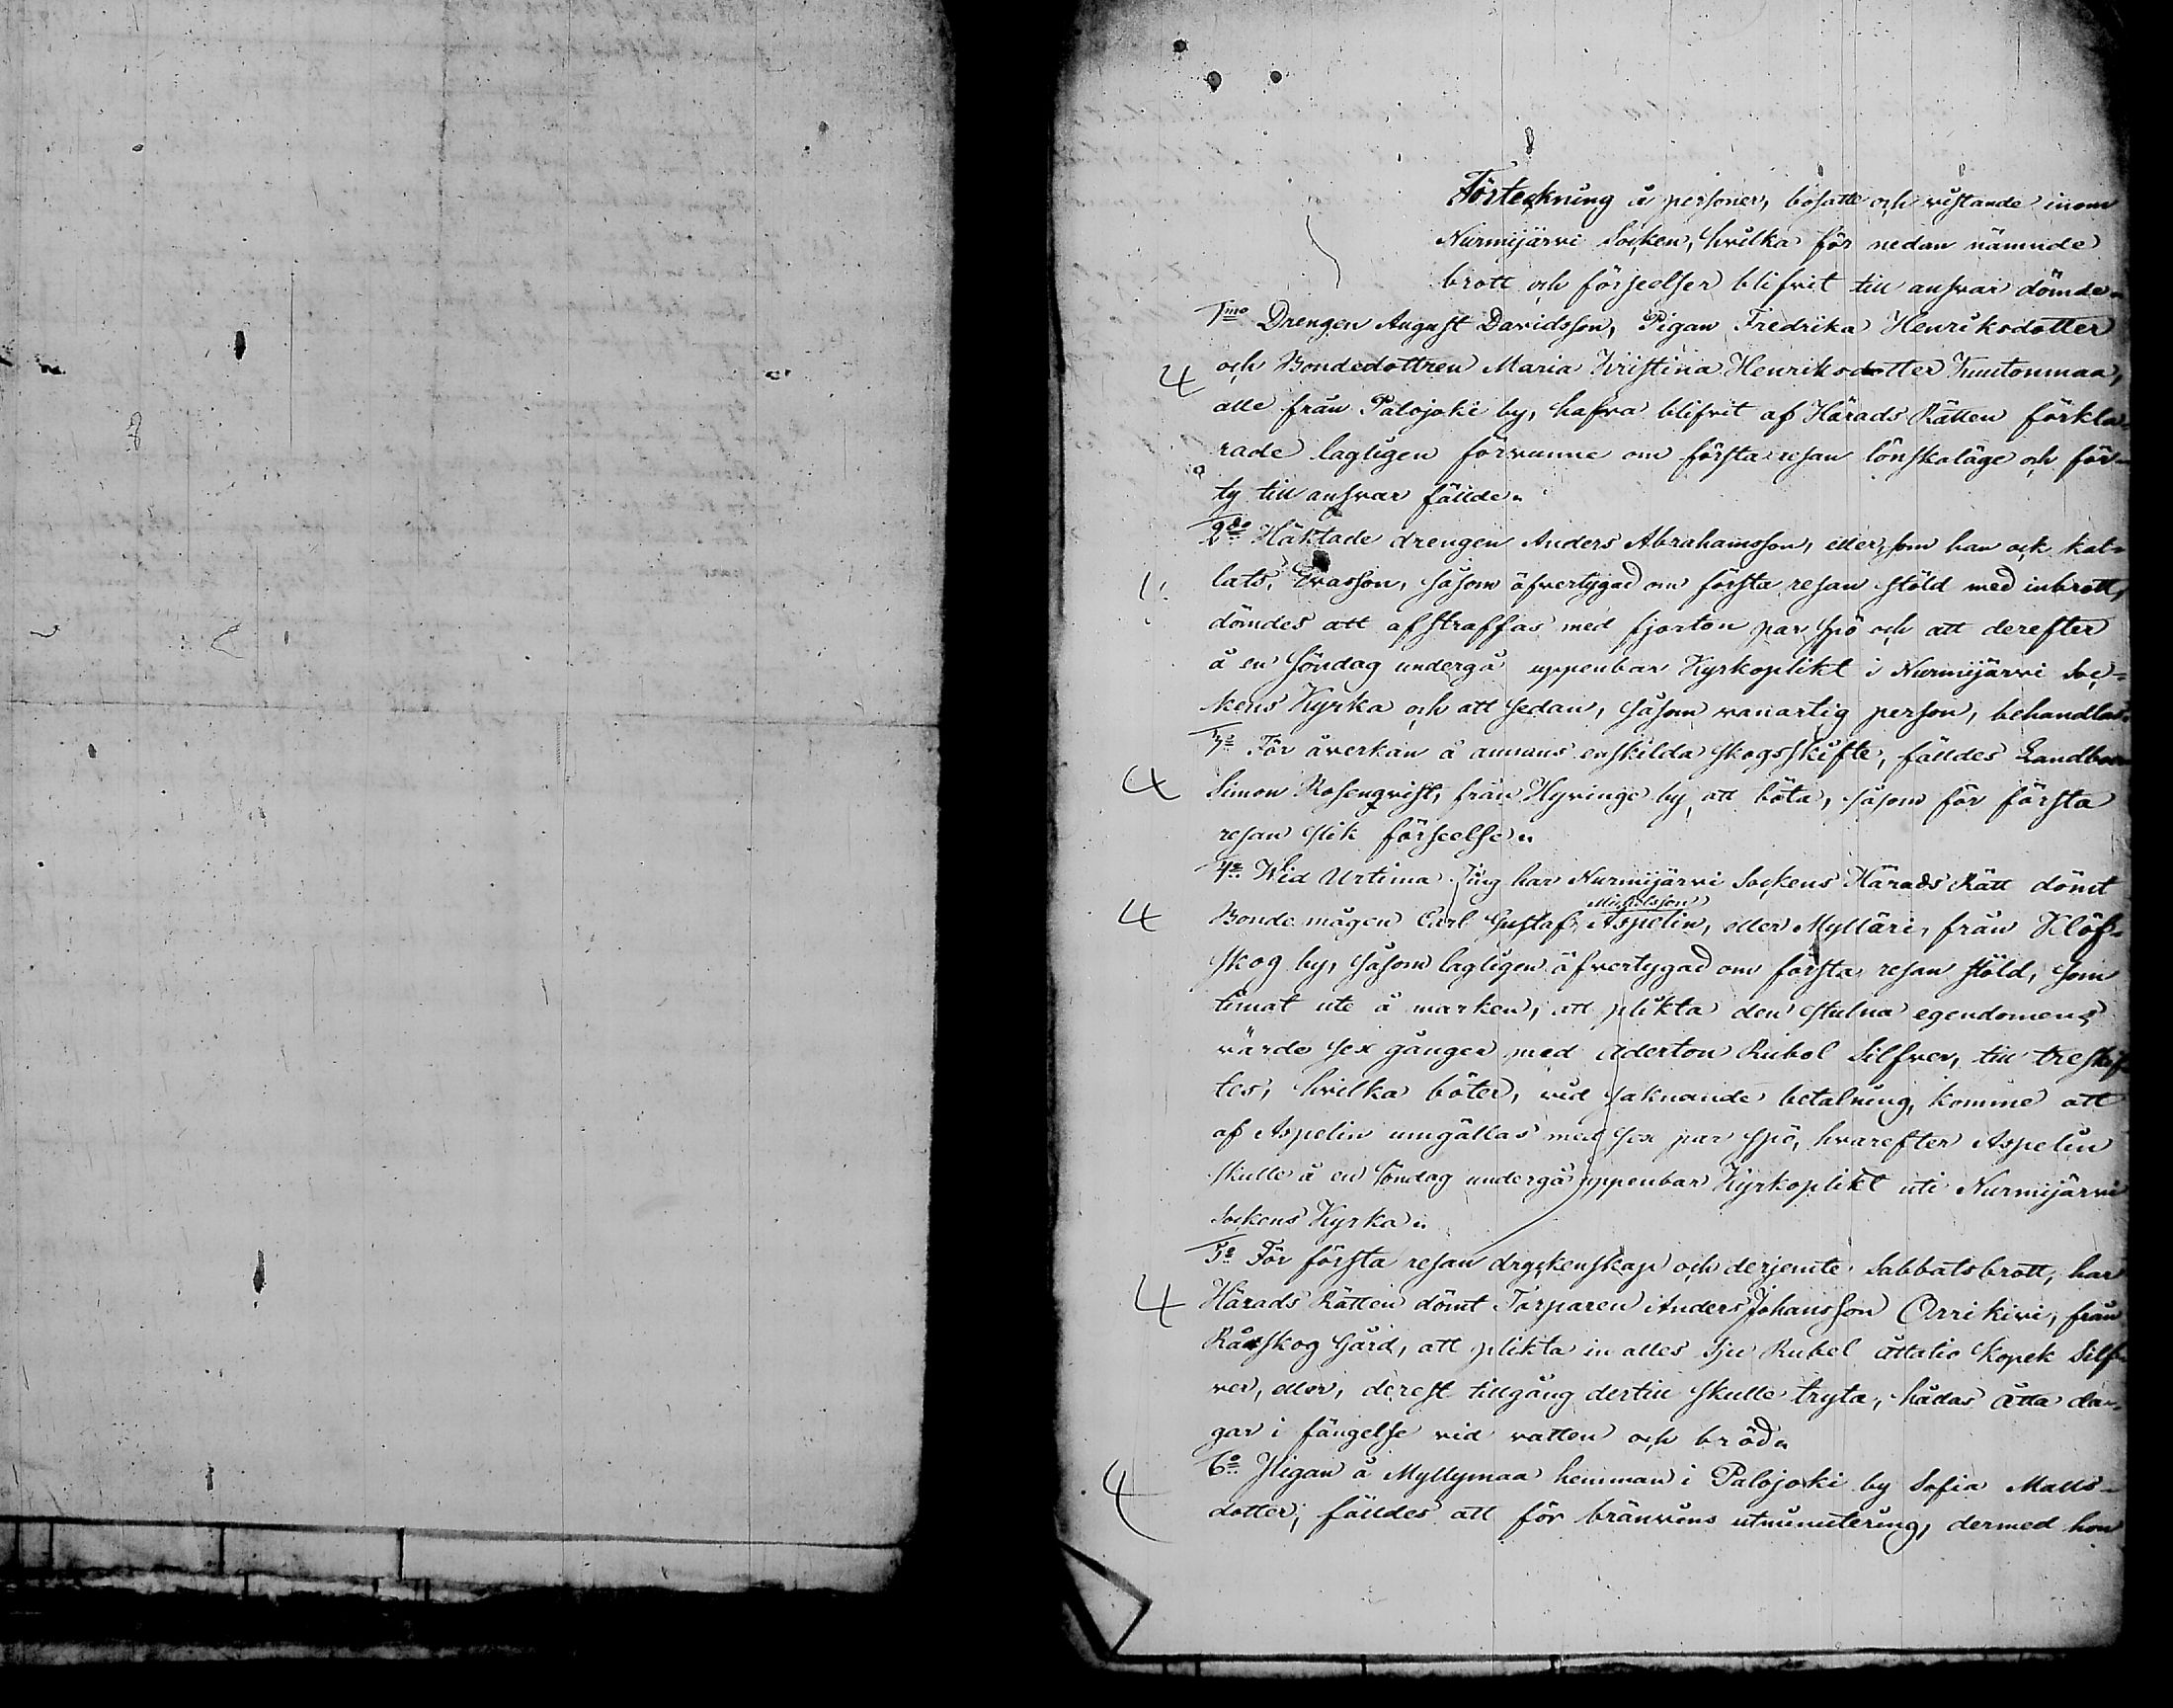 Förteckning å personer, bosatte och vistande inom
Nurmijärvi Socken, hvilka för nedan nämnde
brott och förseelser blifvit till ansvar dömde.
1mo Drengen August Davidsson, Pigan Fredrika Henriksdotter
och Bondedottren Maria Kristina Henriksdotter Kuutonmaa,
4
alle från Palojoki by, hafva blifvit af Härads Rätten förkla-
rade lagligen förvunne om första resan lönskaläge och för-
ty till ansvar fällde.
2do Häktade drengen Anders Abrahamsson, eller, som han ock kal-
lats, Evasson, såsom öfvertygad om första resan stöld med inbrott,
dömdes att afstraffas med fjorton par spö och att derefter
å en Söndag undergå uppenbar Kyrkoplikt i Nurmijärvi Soc-
kens Kyrka och att sedan, såsom vanartig person, behandlas.
3o För åverkan å annans enskilda skogsskifte, fälldes Landboen
4 Simon Rosenqvist, från Hyvinge by, att böta, såsom för första
resan slik förseelse.
4o Wid Urtima Ting har Nurmijärvi Sockens Härads Rätt dömt
Michelsson
4 Bonde mågen Carl Gustaf Aspelin, eller Mylläri, från Klöf-
skog by, såsom lagligen öfvertygad om första resan stöld, som
timat ute å marken, att plikta den stulna egendomens
värde sex gånger med Aderton Rubel Silfver, till treskif-
tes, hvilka böter, vid saknande betalning, komme att
af Aspelin umgällas med sex par spö, hvarefter Aspelin
skulle å en Söndag undergå uppenbar Kyrkoplikt uti Nurmijärvi
Sockens Kyrka.
5o För första resan dryckenskap och derjemte Sabbatsbrott, har
4 Härads Rätten dömt Torparen Anders Johansson Orrikivi, från
Råskog Gård, att plikta in alles Sju Rubel åttatio Kopek Silf-
ver, eller, derest tillgång dertill skulle tryta, hållas Åtta da-
gar i fängelse vid vatten och bröd.
4 6o Pigan å Myllymaa hemman i Palojoki by Sofia Matts-
dotter, fälldes att för bränvins utminutering, dermed hon